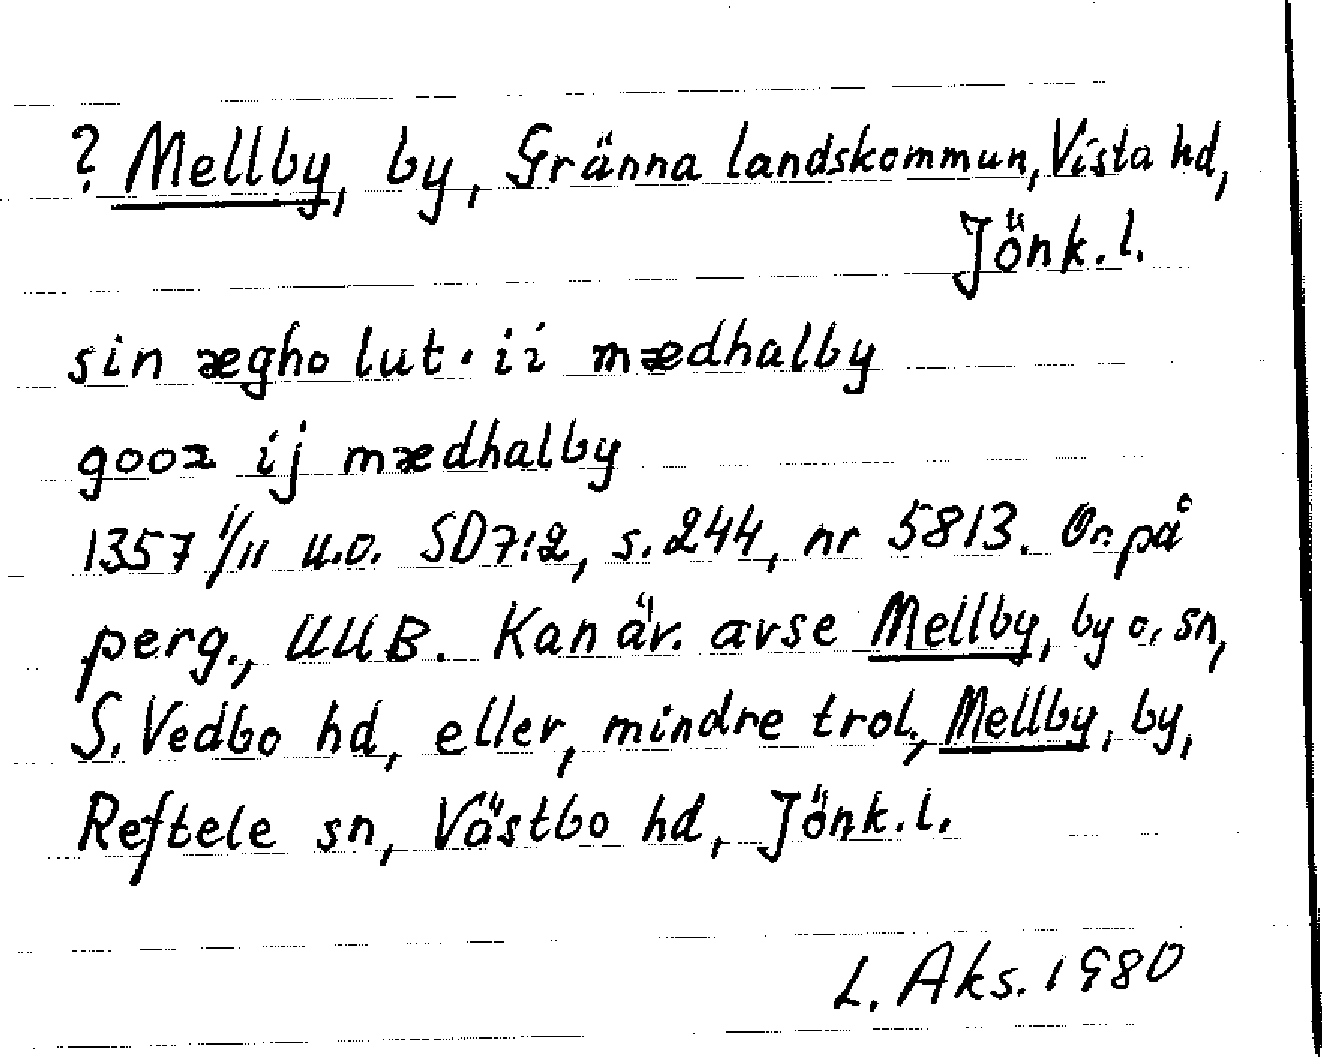 ? Mellby, by, Gränna landskommun, Vista hd,
Jönk. l.
sin ægho lut · ii mædhalby
gooz ij mædhalby
1357 1/11 u.o. SD7:2, s. 244, nr 5813. Or. på
perg., UUB. Kan äv. avse Mellby, by o. sn,
S. Vedbo hd, eller, mindre trol., Mellby, by,
Reftele sn, Västbo hd, Jönk. l.
L. Aks. 1980